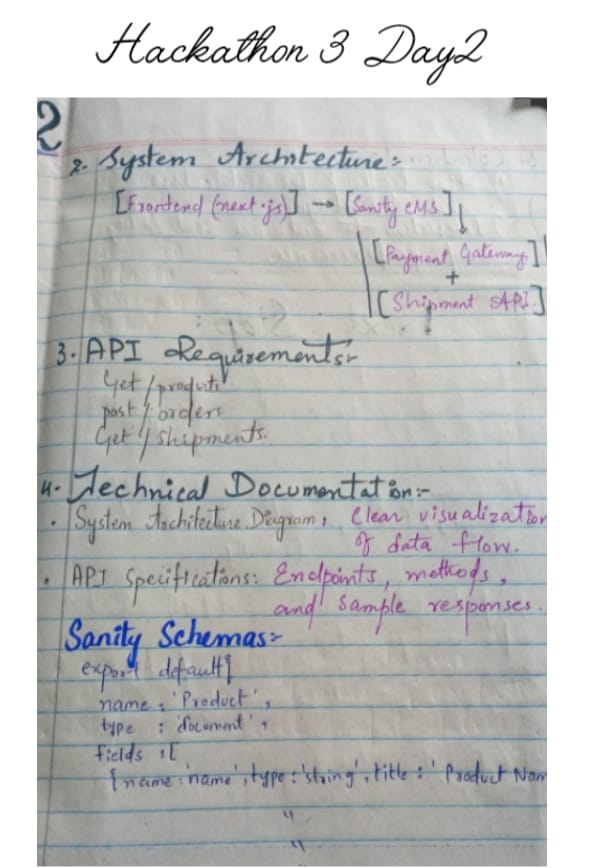 Hackathon 3 Day2
2
2- System Architecture:-
[Frontend (next.js)] → [Sanity CMS]↓
[Payment Gateway]
+
[Shipment API]
3. API Requirements:-
Get / products
post / orders
Get / shipments.
4. Technical Documentation:-
• System Architecture Diagram: Clear visualization
of data flow.
• API Specifications: Endpoints, methods,
and sample responses.
Sanity Schemas:-
export default{
name: 'Product',
type: 'document',
fields :[
{name:'name', type:'string', title:' Product Nam
"
"